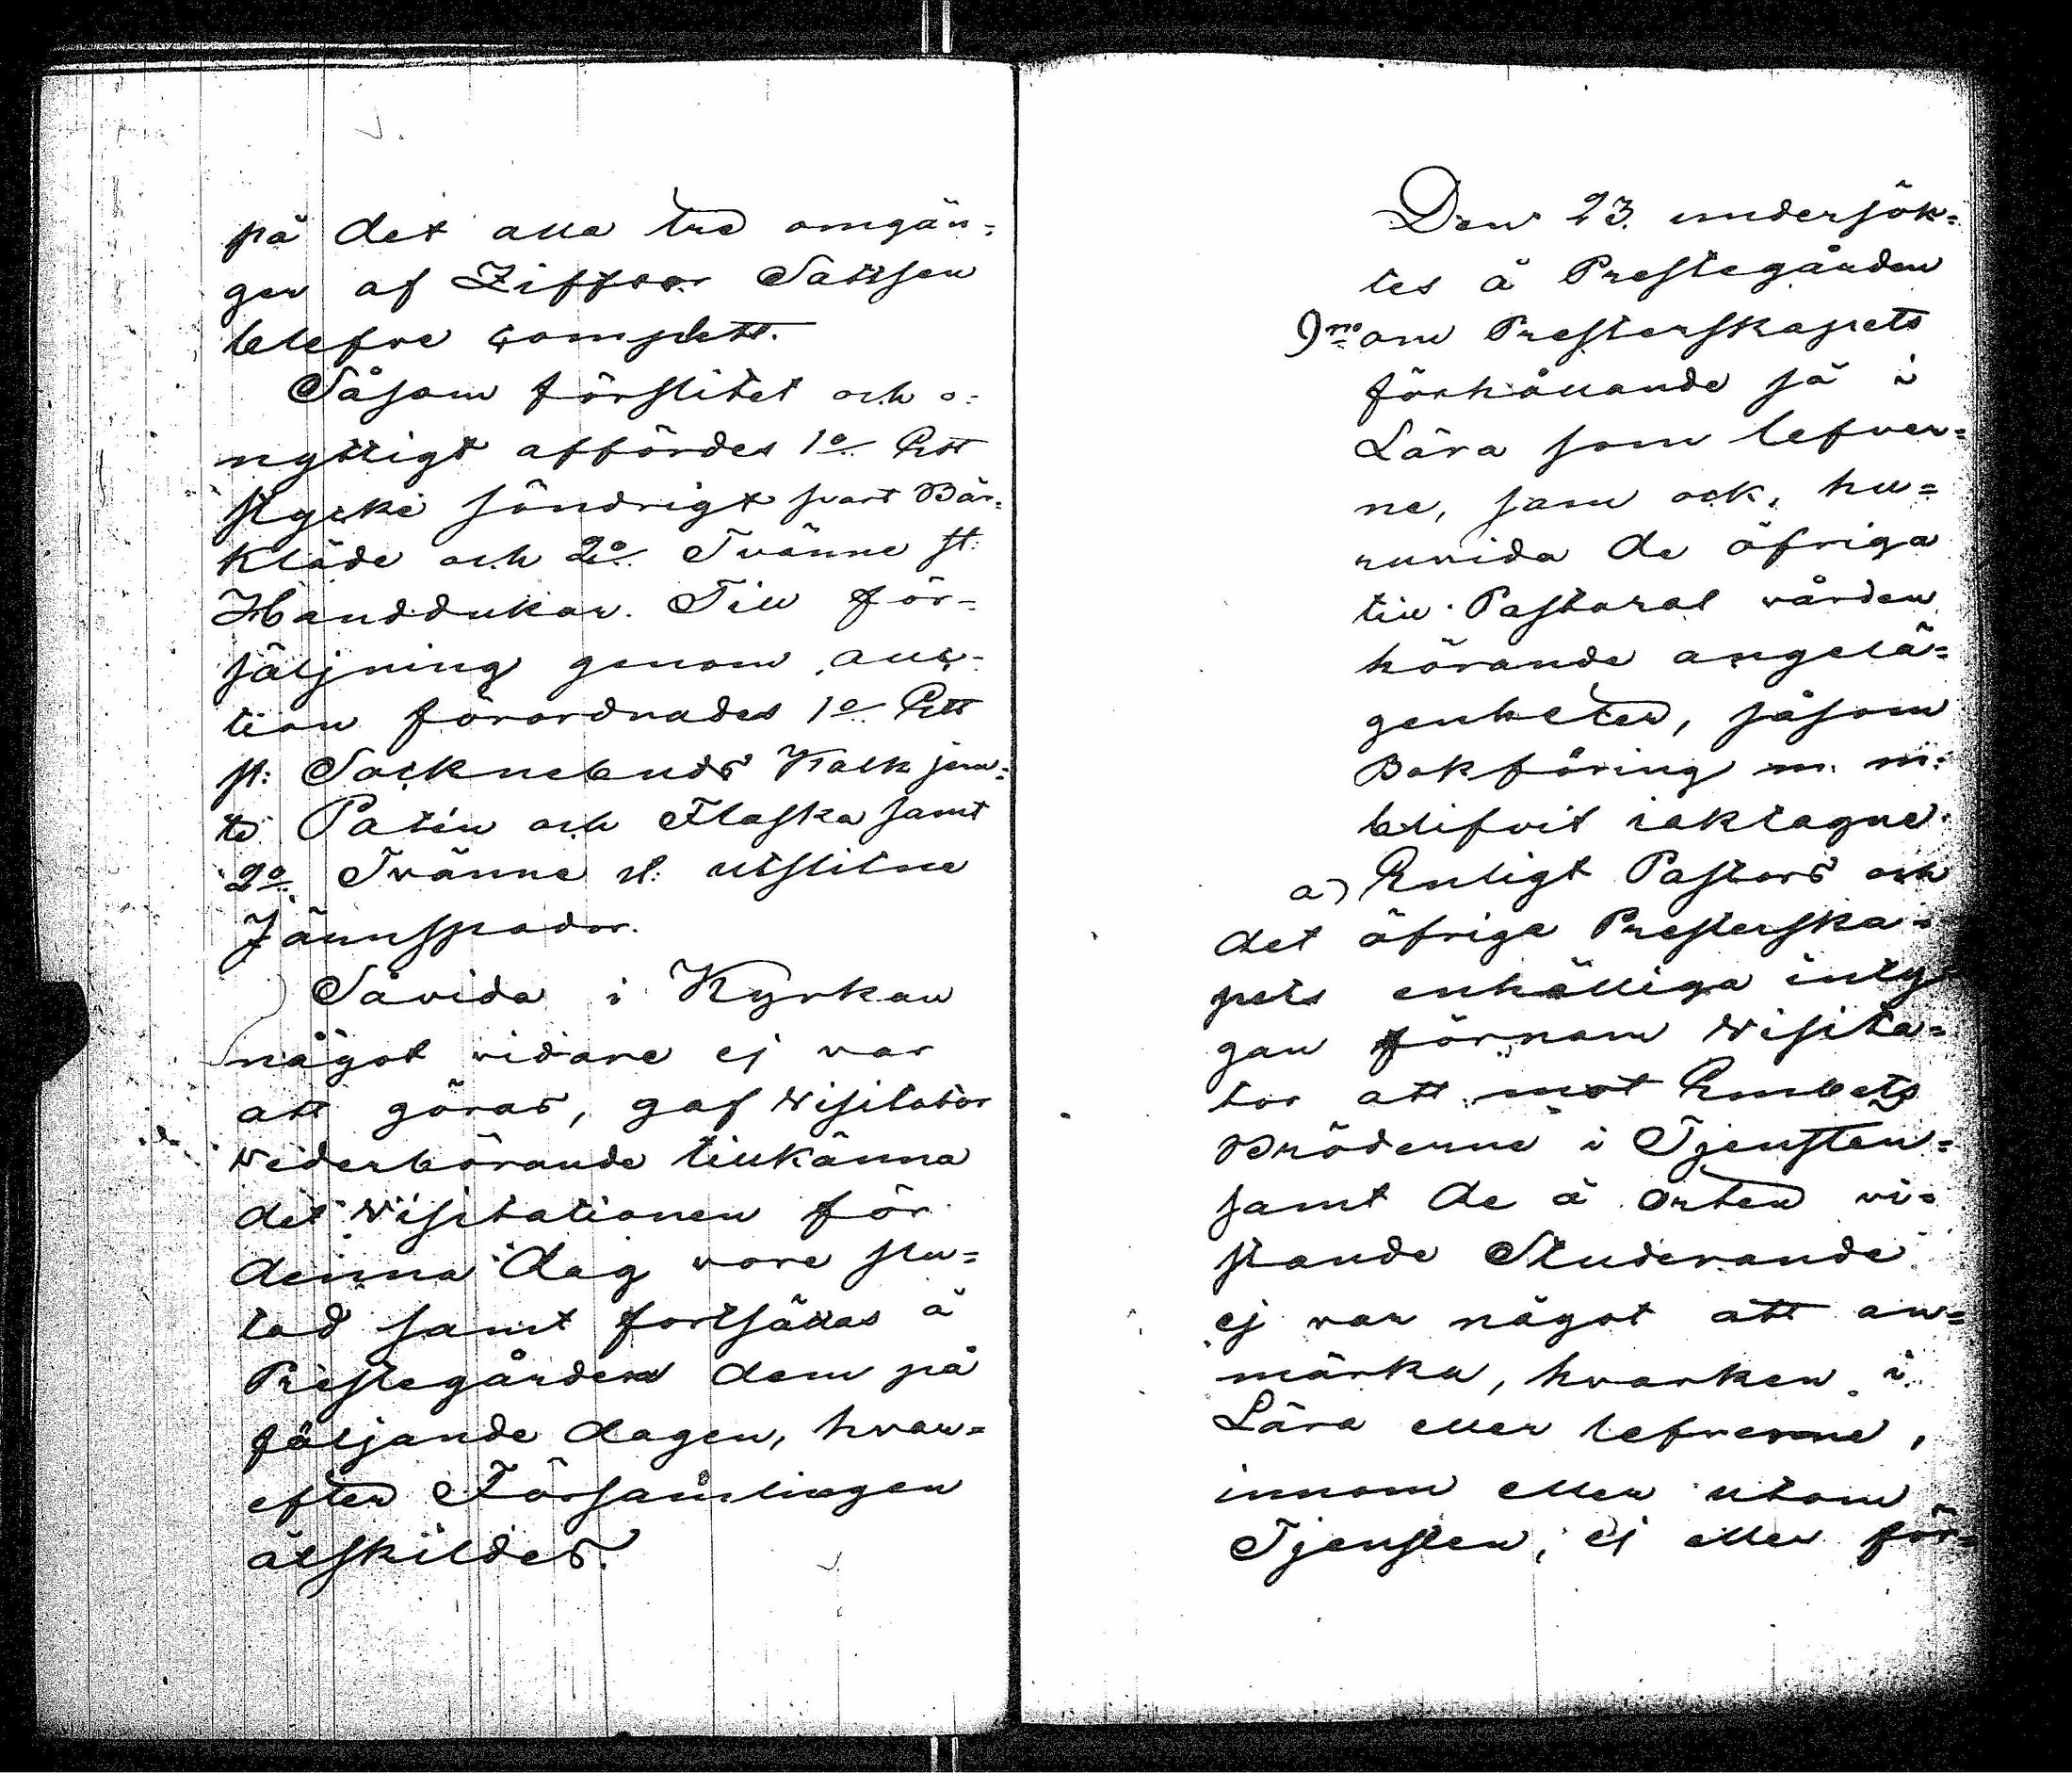 på det alla tre omgån=
gar af Ziffror Sattsen
blefve complett.
Såsom förslitet och o=
nyttigt affördes 1o Ett
stycke söndrigt svart Bår=
kläde och 2o Tvänne st:
Handdukar. Till för=
säljning genom auc=
tion förordnades 1o Ett
st: Socknebuds Kalk jem=
te Patén och Flaska samt
2o Tvänne st: utslitne
Jännspador.
Såvida i Kyrkan
något vidare ej var
att göras, gaf Wisitator
Wederbörande tillkänna
det Wisitationen för
denna dag vore slu=
tad samt fortsättas å
Prestegården dem på
följande dagen, hvar=
efter Församlingen
åtskildes.
Den 23. undersök=
tes å Prestegården
9no om Presterskapets
förhållande så i
Lära som lefver=
ne, som ock, hu=
ruvida de öfriga
till Pastoral vården
hörande angelä=
genheter, såsom
Bokföring m. m:
blifvit iakttagne.
a) Enligt Pastors och
det öfriga Presterska=
pets enhälliga inty
gan förnam Wisita=
tor att mot Embets
Bröderne i Tjensten=
samt de å orten vi=
stande Studerande
ej var något att an=
märka, hvarken i
Lära eller lefverne,
innom eller utom
Tjensten, ej eller för=